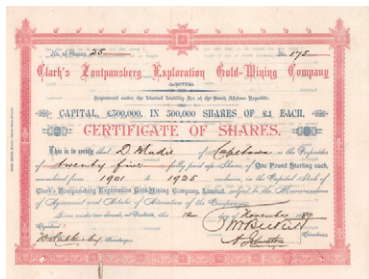 No. of Shares 25 No. 175
Clark's Zoutpansberg Exploration Gold-Mining Company
LIMITED
Registered under the Limited Liability Act of the South African Republic.
CAPITAL, £500,000, IN 500,000 SHARES OF £1 EACH.
CERTIFICATE OF SHARES.
This is to certify that D. Mudie of Capetown is the Proprietor
of twenty five fully paid up Shares, of One Pound Sterling each,
numbered from 1901 to 1925 inclusive, in the Capital Stock of
Clark's Zoutpansberg Exploration Gold-Mining Company, Limited, subject to the Memorandum
of Agreement and Articles of Association of the Company.
Given under our hands, at this day of November 1889